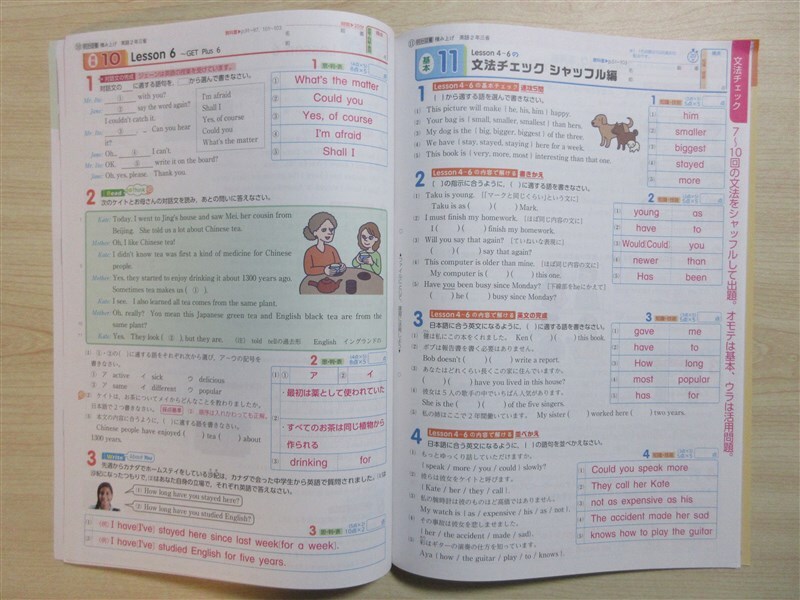 10 Lesson 6 ～GET Plus 6
1
対話文の
に適する語句を、
から選んで書きなさい。
with you?
say the word again?
I couldn't catch it.
Can you hear
it?
I can't.
write it on the board?
Oh, yes, please. Thank you.
I'm afraid
Shall I
Yes, of course
Could you
What's the matter
1
① What's the matter
② Could you
③ Yes, of course
④ I'm afraid
⑤ Shall I
2 Read
次のケイトとお母さんの対話文を読み、あとの問いに答えなさい。
Kate: Today, I went to Jing's house and saw Mei, her cousin from
Beijing. She told us a lot about Chinese tea.
Mother: Oh, I like Chinese tea!
Kate: I didn't know tea was first a kind of medicine for Chinese
people.
Mother: Yes, they started to enjoy drinking it about 1300 years ago.
Sometimes tea makes us ( ① ).
Kate: I see. I also learned all tea comes from the same plant.
Mother: Oh, really? You mean this Japanese green tea and English black tea are from the
same plant?
Kate: Yes. They look ( ② ), but they are.
(注) told tellの過去形 English イングランドの
書きなさい。
① ア active イ sick ウ delicious
② ア same イ different ウ popular
日本語で2つ書きなさい。
Chinese people have enjoyed ( ) tea ( ) about
1300 years.
2
① ア ② イ
・最初は薬として使われていた
・すべてのお茶は同じ植物から
作られる
drinking for
3 Write
① How long have you stayed here?
② How long have you studied English?
3
① I have[I've] stayed here since last week[for a week].
② I have[I've] studied English for five years.
基本 11 Lesson 4-6の
文法チェック シャッフル編
文法チェック
7～10回の文法をシャッフルして出題。オモテは基本、ウラは活用問題。
1 Lesson 4-6の基本チェック 選択5問
( )から適する語を選んで書きなさい。
① This picture will make ( he, his, him ) happy.
② Your bag is ( small, smaller, smallest ) than hers.
③ My dog is the ( big, bigger, biggest ) of the three.
④ We have ( stay, stayed, staying ) here for a week.
⑤ This book is ( very, more, most ) interesting than that one.
1
① him
② smaller
③ biggest
④ stayed
⑤ more
2 Lesson 4-6の内容で解ける 書きかえ
〔 〕の指示に合うように、( )に適する語を書きなさい。
① Taku is young. 〔「マークと同じくらい」という文に〕
Taku is as ( ) ( ) Mark.
② I must finish my homework. 〔ほぼ同じ内容の文に〕
I ( ) ( ) finish my homework.
③ Will you say that again? 〔ていねいな表現に〕
( ) ( ) say that again?
④ This computer is older than mine. 〔ほぼ同じ内容の文に〕
My computer is ( ) ( ) this one.
⑤ Have you been busy since Monday? 〔下線部をheにかえて〕
( ) he ( ) busy since Monday?
2
① young as
② have to
③ Would[Could] you
④ newer than
⑤ Has been
3 Lesson 4-6の内容で解ける 英文の完成
日本語に合う英文になるように、( )に適する語を書きなさい。
① 健は私にこの本をくれました。 Ken ( ) ( ) this book.
② ボブは報告書を書く必要はありません。
Bob doesn't ( ) ( ) write a report.
③ あなたはどれくらい長くこの家に住んでいますか。
( ) ( ) have you lived in this house?
④ 彼女は5人の歌手の中でいちばん人気があります。
She is the ( ) ( ) of the five singers.
⑤ 私の姉はここで2年間働いています。 My sister ( ) worked here ( ) two years.
3
① gave me
② have to
③ How long
④ most popular
⑤ has for
4 Lesson 4-6の内容で解ける 並べかえ
日本語に合う英文になるように、( )の語句を並べかえなさい。
① もっとゆっくり話していただけますか。
( speak / more / you / could ) slowly?
② 彼らは彼女をケイトと呼びます。
( Kate / her / they / call ).
③ 私の腕時計は彼のものほど高価ではありません。
My watch is ( as / expensive / his / as / not ).
④ その事故は彼女を悲しませました。
( her / the accident / made / sad ).
⑤ 彩はギターの演奏の仕方を知っています。
Aya ( how / the guitar / play / to / knows ).
4
① Could you speak more
② They call her Kate
③ not as expensive as his
④ The accident made her sad
⑤ knows how to play the guitar